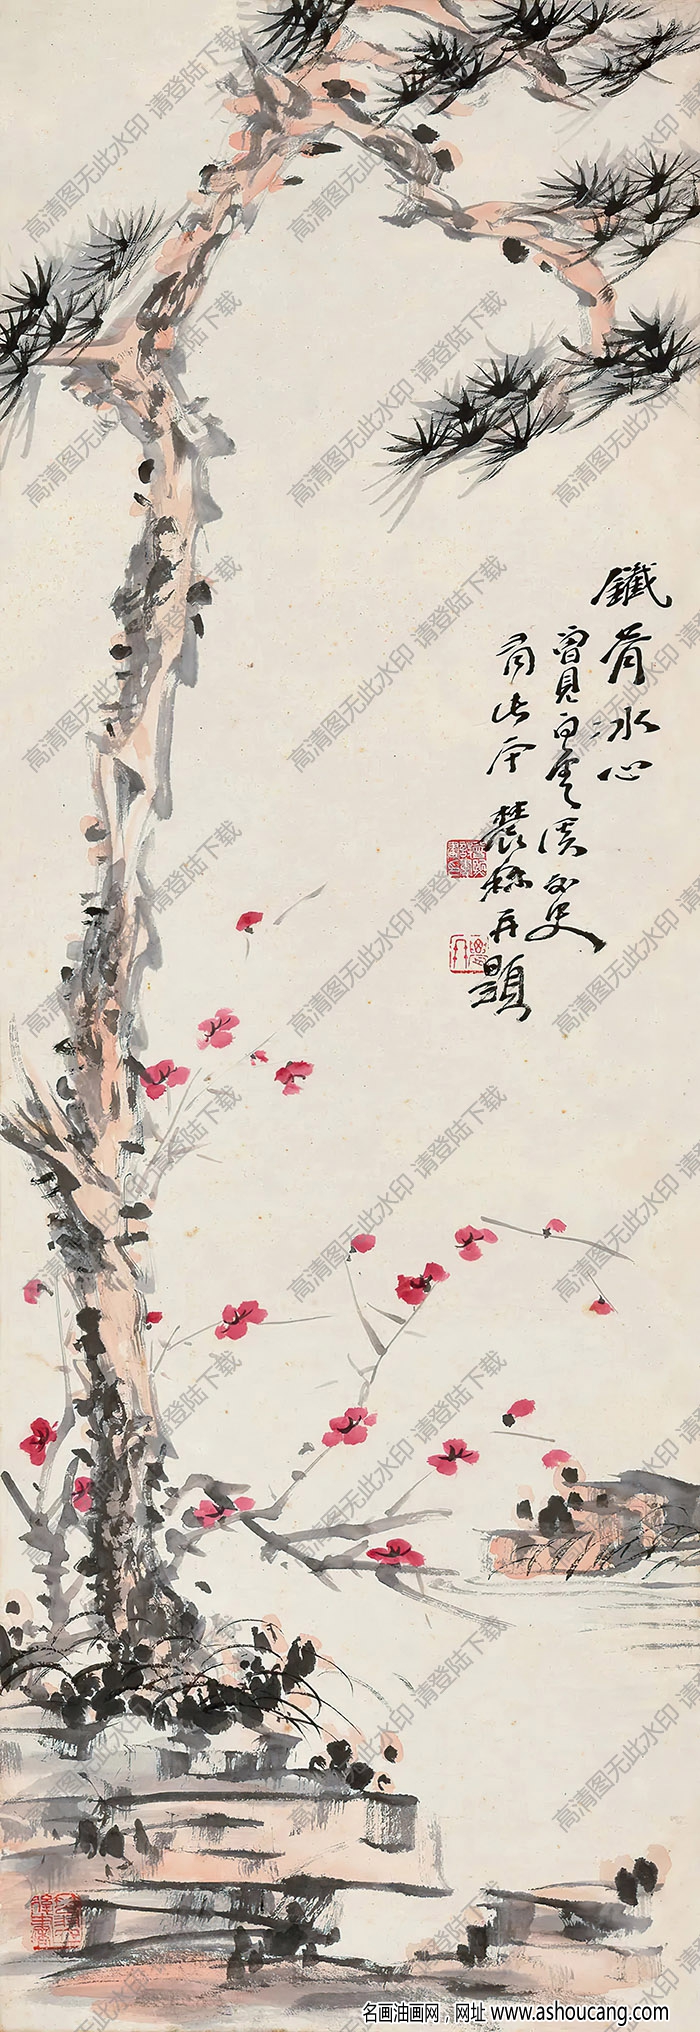 鐵骨冰心
曾見白雲溪外史
有此本 農髯再題
高清图无此水印 请登陆下载
名画油画网，网址 www.ashoucang.com